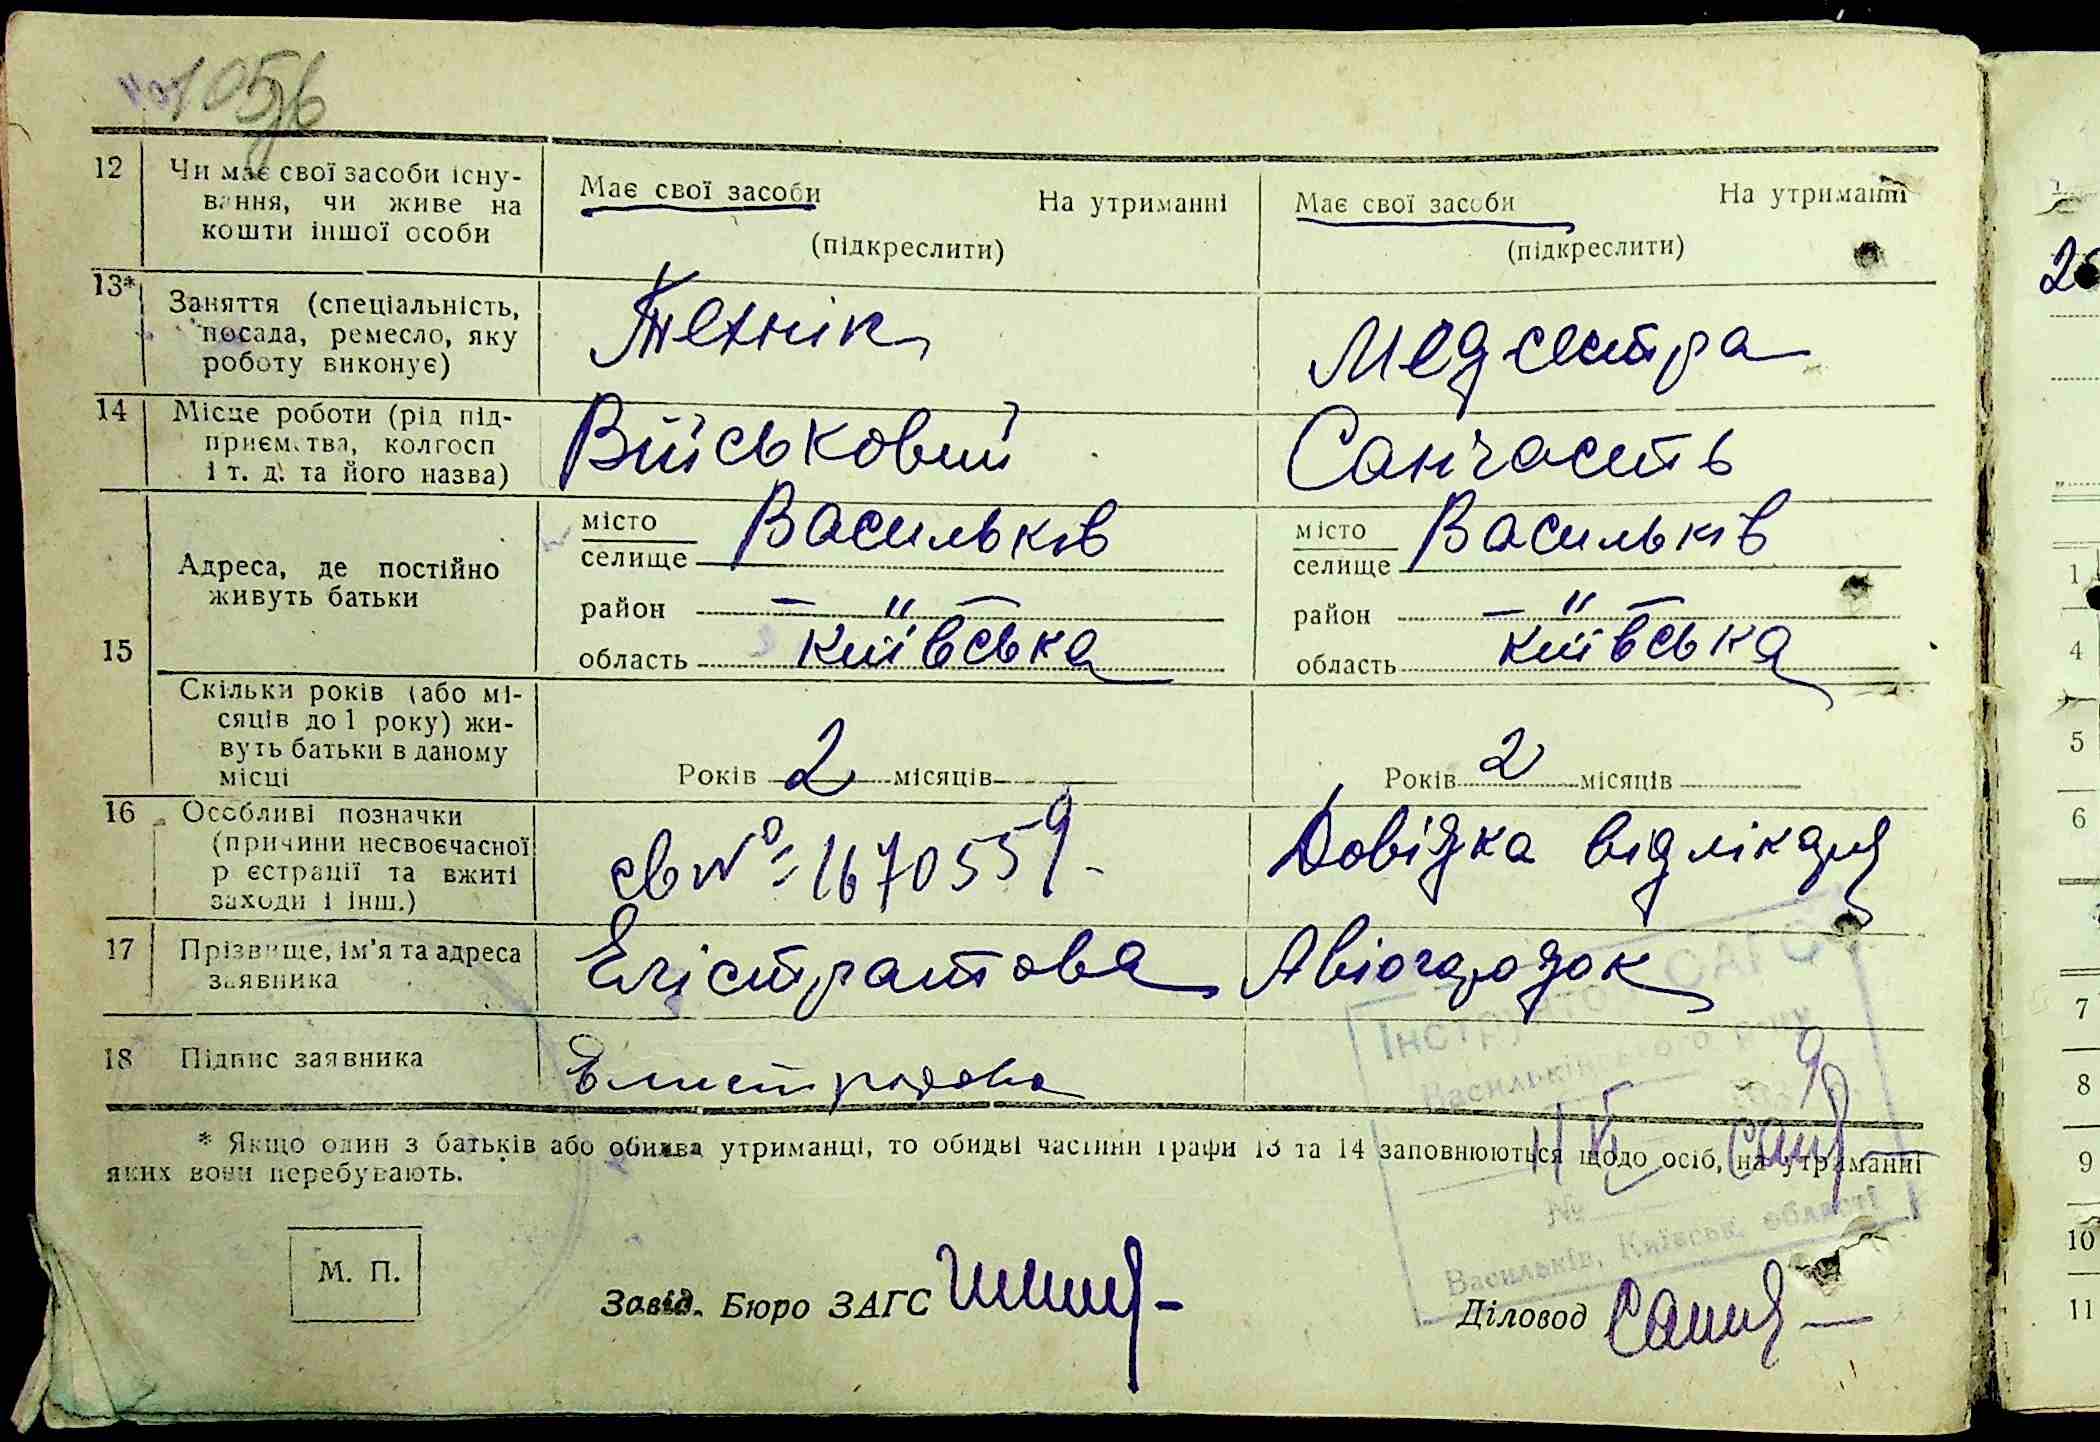 12 Чи має свої засоби існу-
вання, чи живе на
кошти іншої особи
Має свої засоби На утриманні
(підкреслити)
Має свої засоби На утриманні
(підкреслити)
13* Заняття (спеціальність,
посада, ремесло, яку
роботу виконує)
Технік
Медсестра
14 Місце роботи (рід під-
приємства, колгосп
і т. д. та його назва)
Військовий
Санчасть
15 Адреса, де постійно
живуть батьки
місто
селище Васильків
район — " —
область Київська
місто
селище Васильків
район — " —
область Київська
Скільки років (або мі-
сяців до 1 року) жи-
вуть батьки в даному
місці
Років 2 місяців
Років 2 місяців
16 Особливі позначки
(причини несвоєчасної
реєстрації та вжиті
заходи і інш.)
св № 1670559
Довідка від лікаря
17 Прізвище, ім'я та адреса
заявника
Елістратова Авіогородок
18 Підпис заявника
Елистратова
* Якщо один з батьків або обидва утриманці, то обидві частини графи 13 та 14 заповнюються щодо осіб, на утриманні
яких вони перебувають.
Інструктор ЗАГС
Васильківського р-ну
№
Васильків, Київськ. області
М. П.
Завід. Бюро ЗАГС
Діловод
26
1
4
5
6
7
8
9
10
11